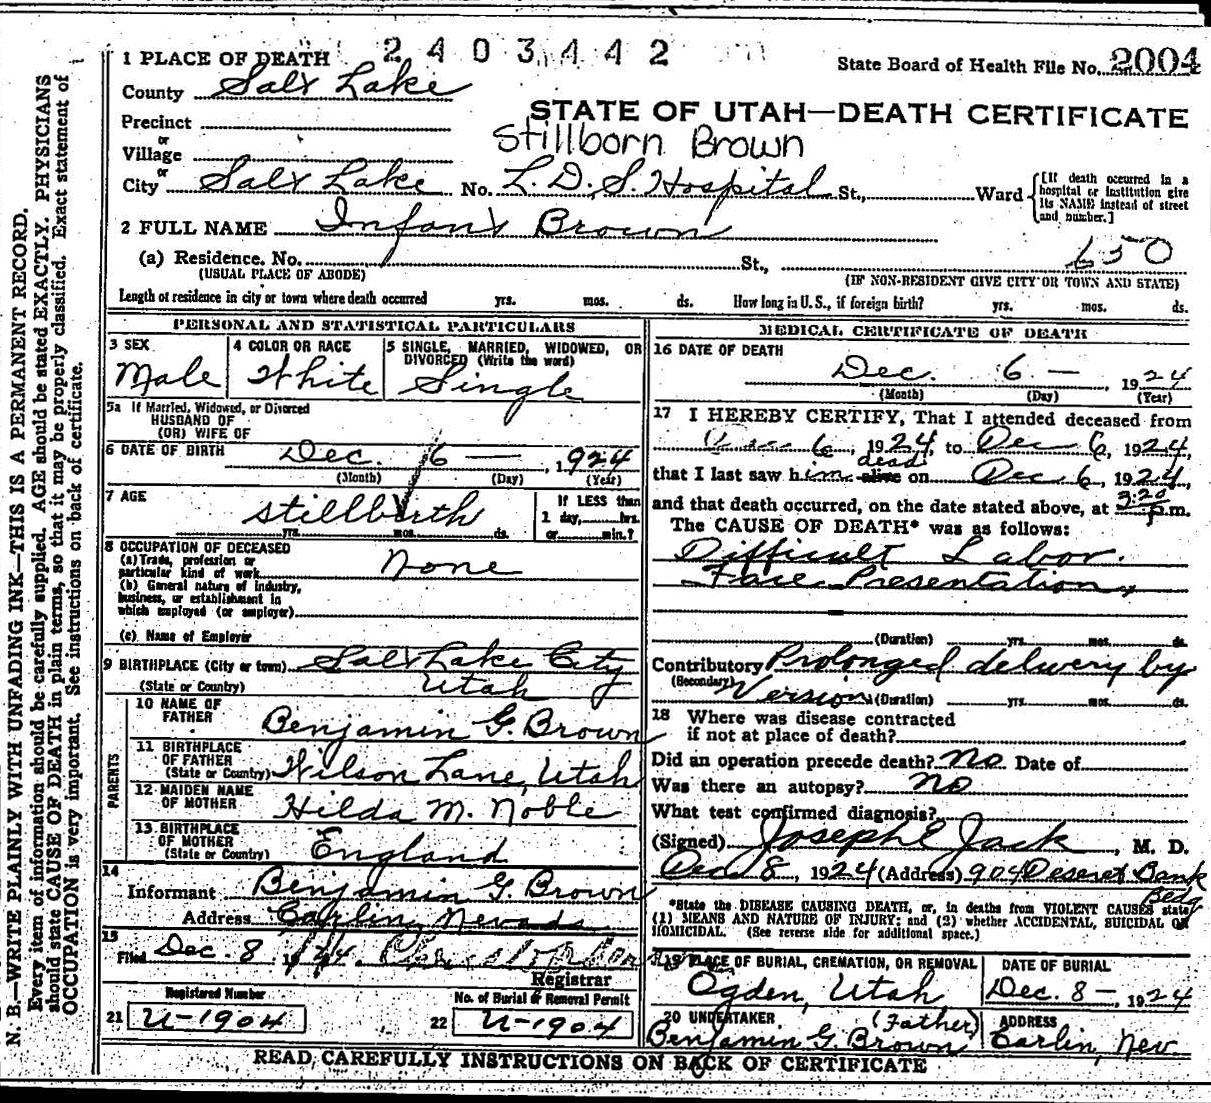 N. B.—WRITE PLAINLY WITH UNFADING INK—THIS IS A PERMANENT RECORD.
Every item of information should be carefully supplied. AGE should be stated EXACTLY. PHYSICIANS
should state CAUSE OF DEATH in plain terms, so that it may be properly classified. Exact statement of
OCCUPATION is very important. See instructions on back of certificate.
1 PLACE OF DEATH 2403442
State Board of Health File No. 2004
County Salt Lake
STATE OF UTAH—DEATH CERTIFICATE
Precinct
or
Stillborn Brown
Village
or
City Salt Lake No. L. D. S. Hospital St., Ward
[If death occurred in a
hospital or institution give
its NAME instead of street
and number.]
2 FULL NAME Infant Brown
650
(a) Residence. No. St.,
(USUAL PLACE OF ABODE) (IF NON-RESIDENT GIVE CITY OR TOWN AND STATE)
Length of residence in city or town where death occurred yrs. mos. ds. How long in U. S., if foreign birth? yrs. mos. ds.
PERSONAL AND STATISTICAL PARTICULARS
3 SEX
Male
4 COLOR OR RACE
White
5 SINGLE, MARRIED, WIDOWED, OR
DIVORCED (Write the word)
Single
5a If Married, Widowed, or Divorced
HUSBAND OF
(OR) WIFE OF
6 DATE OF BIRTH Dec. 6 — , 1924
(Month) (Day) (Year)
7 AGE
stillbirth
yrs. mos. ds.
If LESS than
1 day, hrs.
or min.?
8 OCCUPATION OF DECEASED
(a) Trade, profession or
particular kind of work None
(b) General nature of industry,
business, or establishment in
which employed (or employer)
(c) Name of Employer
9 BIRTHPLACE (City or town) Salt Lake City
(State or Country) Utah
PARENTS
10 NAME OF
FATHER Benjamin G. Brown
11 BIRTHPLACE
OF FATHER
(State or Country) Wilson Lane, Utah
12 MAIDEN NAME
OF MOTHER Hilda M. Noble
13 BIRTHPLACE
OF MOTHER
(State or Country) England
14
Informant Benjamin G. Brown
Address Carlin, Nevada
15
Filed Dec. 8
Registrar
Registered Number
21 U-1904
No. of Burial or Removal Permit
22 U-1904
MEDICAL CERTIFICATE OF DEATH
16 DATE OF DEATH
Dec. 6 — , 1924
(Month) (Day) (Year)
17 I HEREBY CERTIFY, That I attended deceased from
Dec 6, 1924, to Dec 6, 1924,
dead
that I last saw him alive on Dec 6, 1924,
and that death occurred, on the date stated above, at 3:20 p.m.
The CAUSE OF DEATH* was as follows:
Difficult Labor.
Face Presentation,
(Duration) yrs. mos. ds.
Contributory Prolonged delivery by
(Secondary) Version (Duration) yrs. mos. ds.
18 Where was disease contracted
if not at place of death?
Did an operation precede death? No Date of
Was there an autopsy? No
What test confirmed diagnosis?
(Signed) Joseph E Jack, M. D.
Dec 8, 1924 (Address) 904 Deseret Bank
Bldg
*State the DISEASE CAUSING DEATH, or, in deaths from VIOLENT CAUSES state
(1) MEANS AND NATURE OF INJURY; and (2) whether ACCIDENTAL, SUICIDAL OR
HOMICIDAL. (See reverse side for additional space.)
19 PLACE OF BURIAL, CREMATION, OR REMOVAL
Ogden, Utah
DATE OF BURIAL
Dec. 8 —, 1924
20 UNDERTAKER (Father)
Benjamin G. Brown
ADDRESS
Carlin, Nev.
READ CAREFULLY INSTRUCTIONS ON BACK OF CERTIFICATE